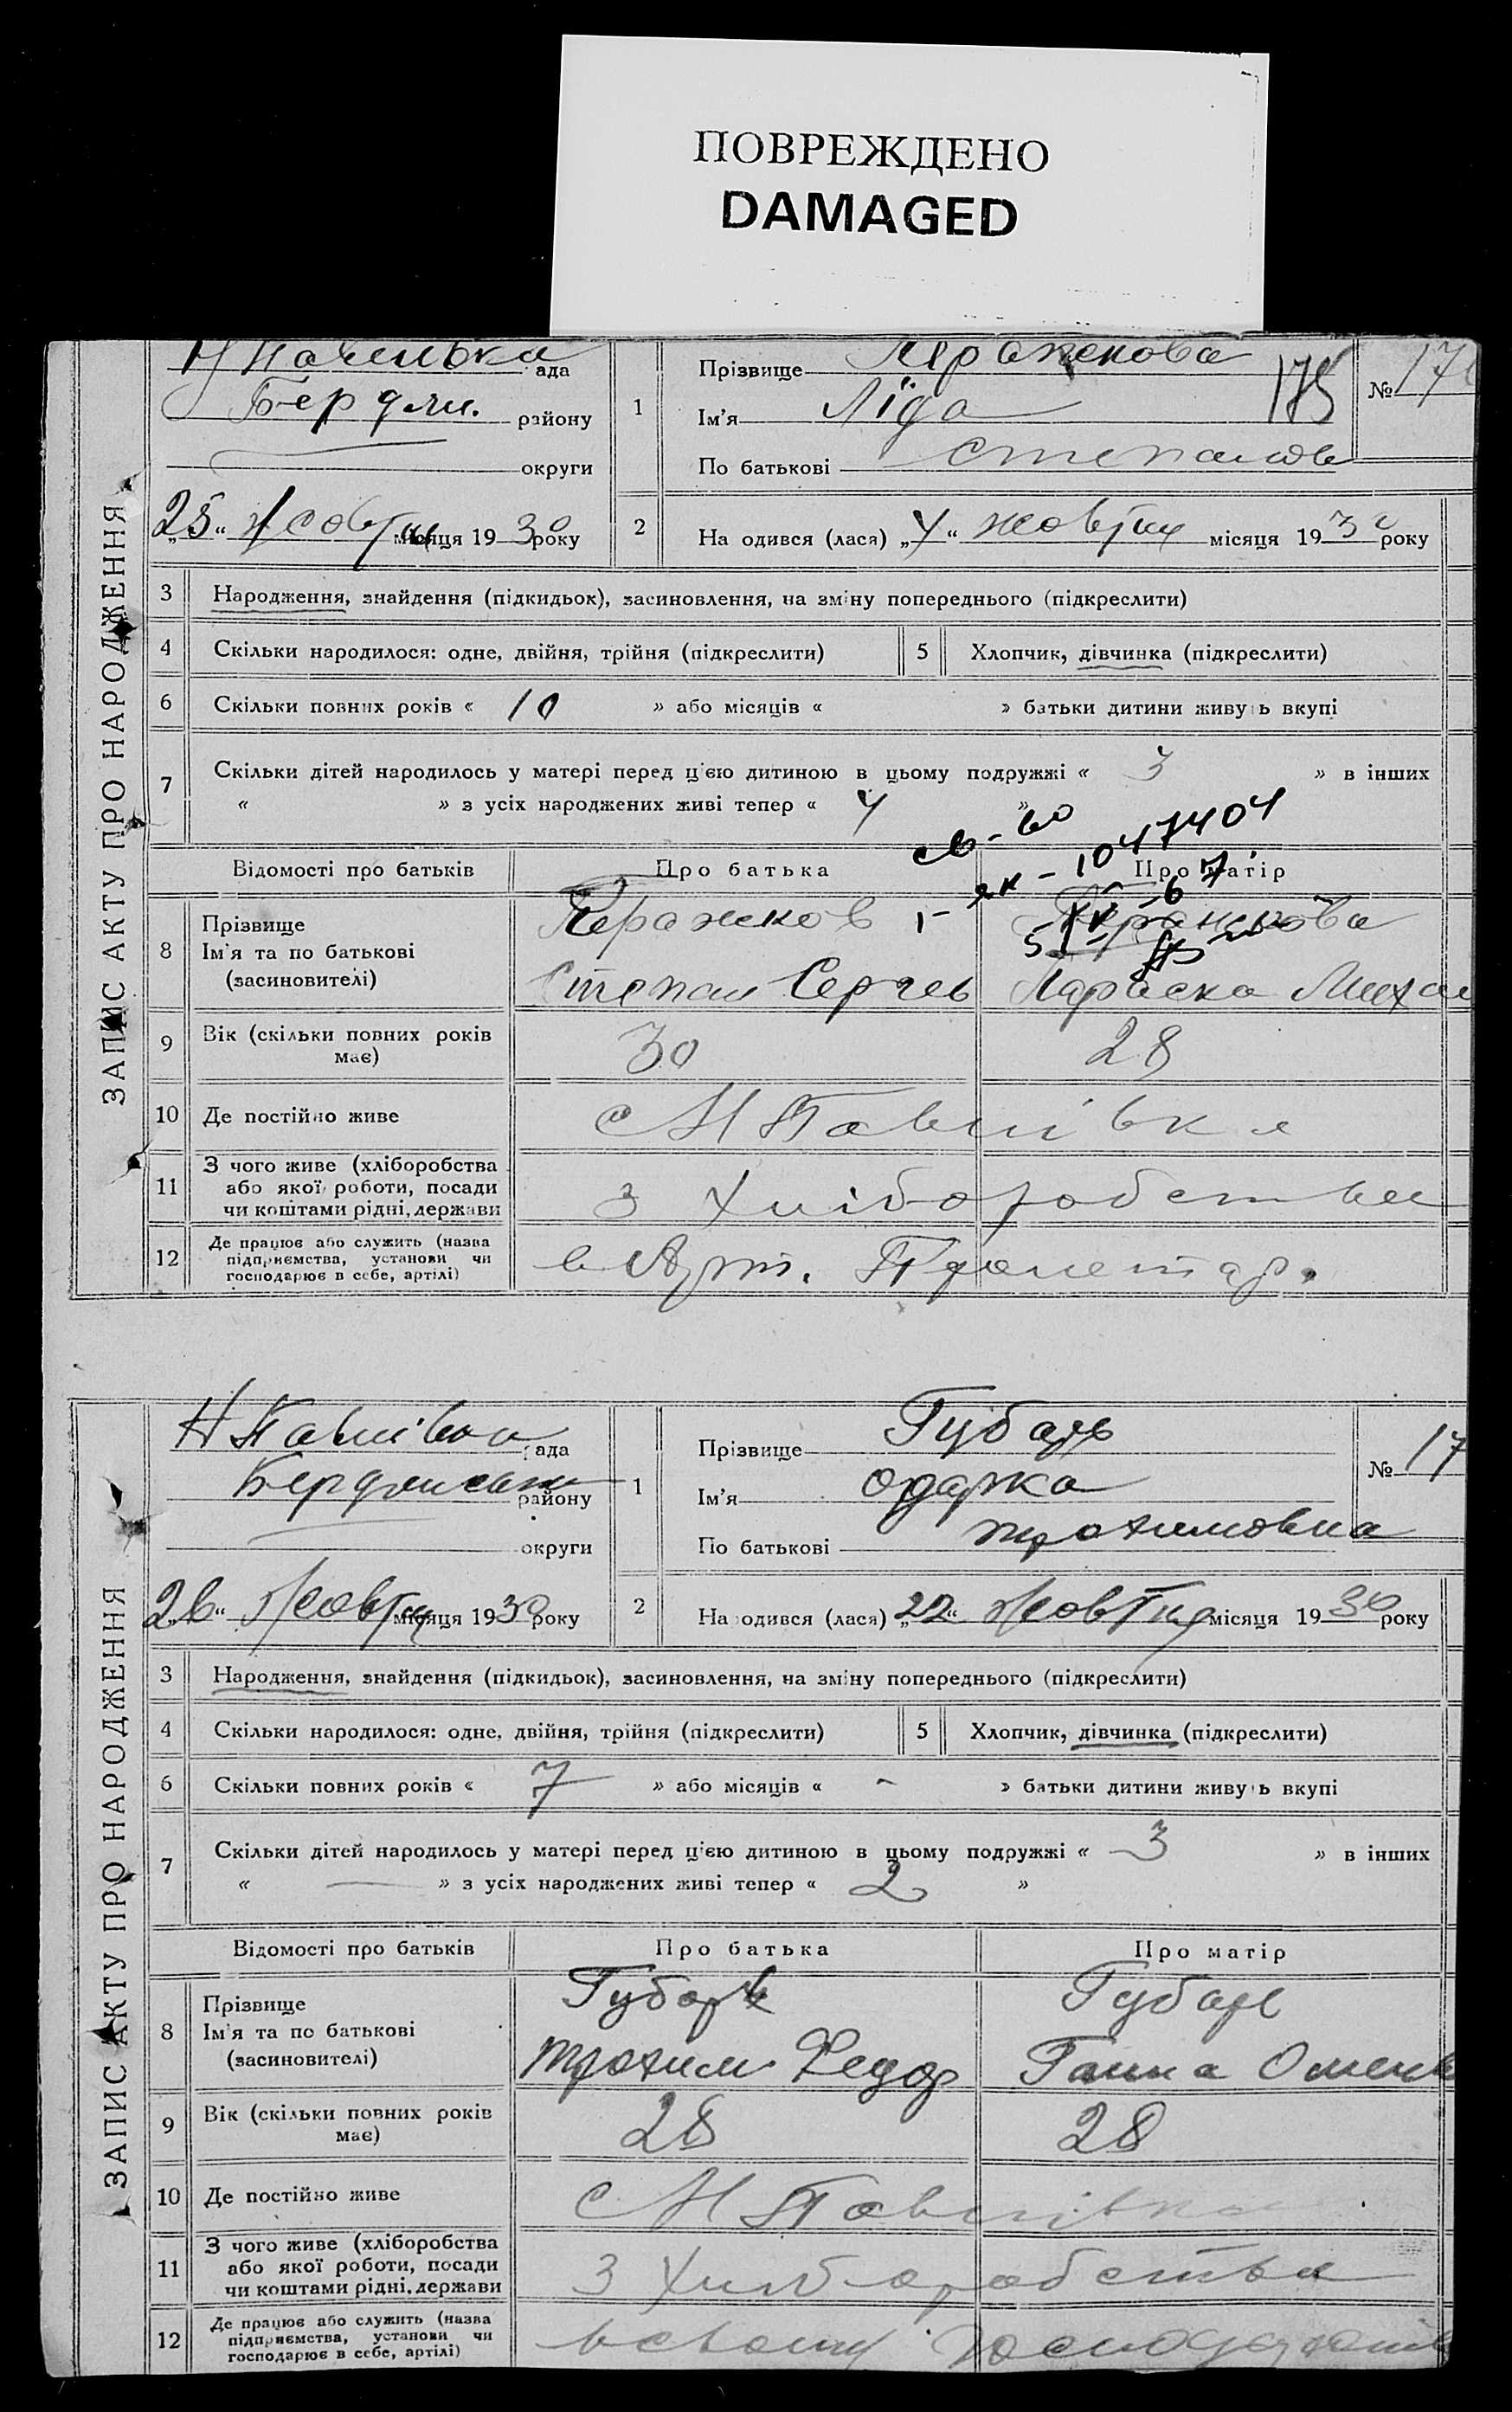 ПОВРЕЖДЕНО
DAMAGED
ЗАПИС АКТУ ПРО НАРОДЖЕННЯ
ада
Бердян. району
округи
25 Жовтня місяця 1930 року
1
Прізвище
Ім'я Ліда
По батькові Степанов
175
№ 17
2
На одився (лася) „4“ жовтня місяця 193 року
3 Народження, знайдення (підкидьок), засиновлення, на зміну попереднього (підкреслити)
4 Скільки народилося: одне, двійня, трійня (підкреслити)
5 Хлопчик, дівчинка (підкреслити)
6 Скільки повних років « 10 » або місяців « » батьки дитини живуть вкупі
7 Скільки дітей народилось у матері перед цією дитиною в цьому подружжі « 3 » в інших
« » з усіх народжених живі тепер « 4 »
Відомості про батьків
Про батька
Про матір
8 Прізвище
Ім'я та по батькові
(засиновителі)
Степан Сергев
Параска Михай
9 Вік (скільки повних років має)
30
28
10 Де постійно живе
с Н Павлівка
11 З чого живе (хліборобства або якої роботи, посади чи коштами рідні, держави
з хліборобства
12 Де працює або служить (назва підприємства, установи чи господарює в себе, артілі)
в Арт. Пролетар.
ЗАПИС АКТУ ПРО НАРОДЖЕННЯ
Н Павлівка рада
Бердянськ району
округи
26 Жовтня місяця 1930 року
1
Прізвище Губарь
Ім'я Одарка
По батькові Трохимовна
№ 17
2
На одився (лася) „22“ Жовтня місяця 1930 року
3 Народження, знайдення (підкидьок), засиновлення, на зміну попереднього (підкреслити)
4 Скільки народилося: одне, двійня, трійня (підкреслити)
5 Хлопчик, дівчинка (підкреслити)
6 Скільки повних років « 7 » або місяців « - » батьки дитини живуть вкупі
7 Скільки дітей народилось у матері перед цією дитиною в цьому подружжі « 3 » в інших
« — » з усіх народжених живі тепер « 2 »
Відомості про батьків
Про батька
Про матір
8 Прізвище
Ім'я та по батькові
(засиновителі)
Губарь
Трохим Федор
Губарь
Ганна Омель
9 Вік (скільки повних років має)
28
28
10 Де постійно живе
с Н Павлівка
11 З чого живе (хліборобства або якої роботи, посади чи коштами рідні, держави
З Хліборобства
12 Де працює або служить (назва підприємства, установи чи господарює в себе, артілі)
в своему господарстві